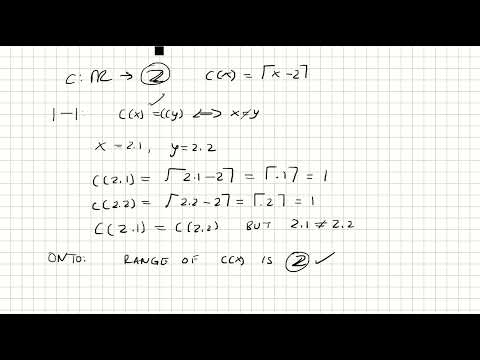 C: ℝ → ℤ C(x) = ⌈x - 2⌉
1-1: C(x) = C(y) ⟺ x ≠ y ✓
x = 2.1, y = 2.2
C(2.1) = ⌈2.1 - 2⌉ = ⌈.1⌉ = 1
C(2.2) = ⌈2.2 - 2⌉ = ⌈.2⌉ = 1
C(2.1) = C(2.2) BUT 2.1 ≠ 2.2
ONTO: RANGE OF C(x) IS ℤ ✓